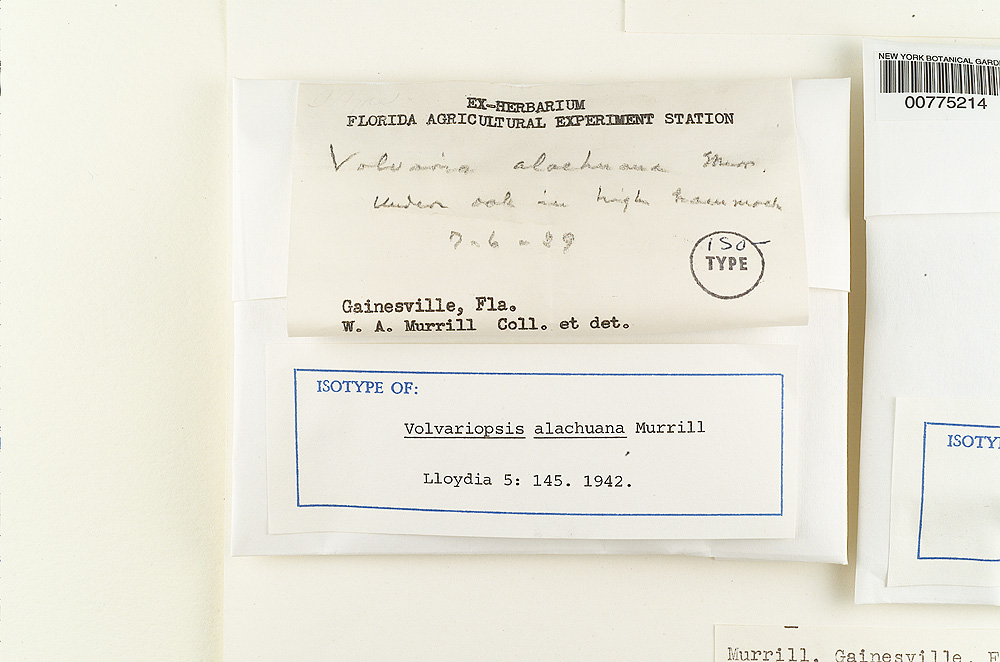 EX-HERBARIUM
FLORIDA AGRICULTURAL EXPERIMENT STATION
Volvaria alachuana Murr.
Under oak in high hammock
7-6-39
ISO-
TYPE
Gainesville, Fla.
W. A. Murrill Coll. et det.
ISOTYPE OF:
Volvariopsis alachuana Murrill
Lloydia 5: 145. 1942.
NEW YORK BOTANICAL GARDE
00775214
ISOTY
Murrill, Gainesville, F